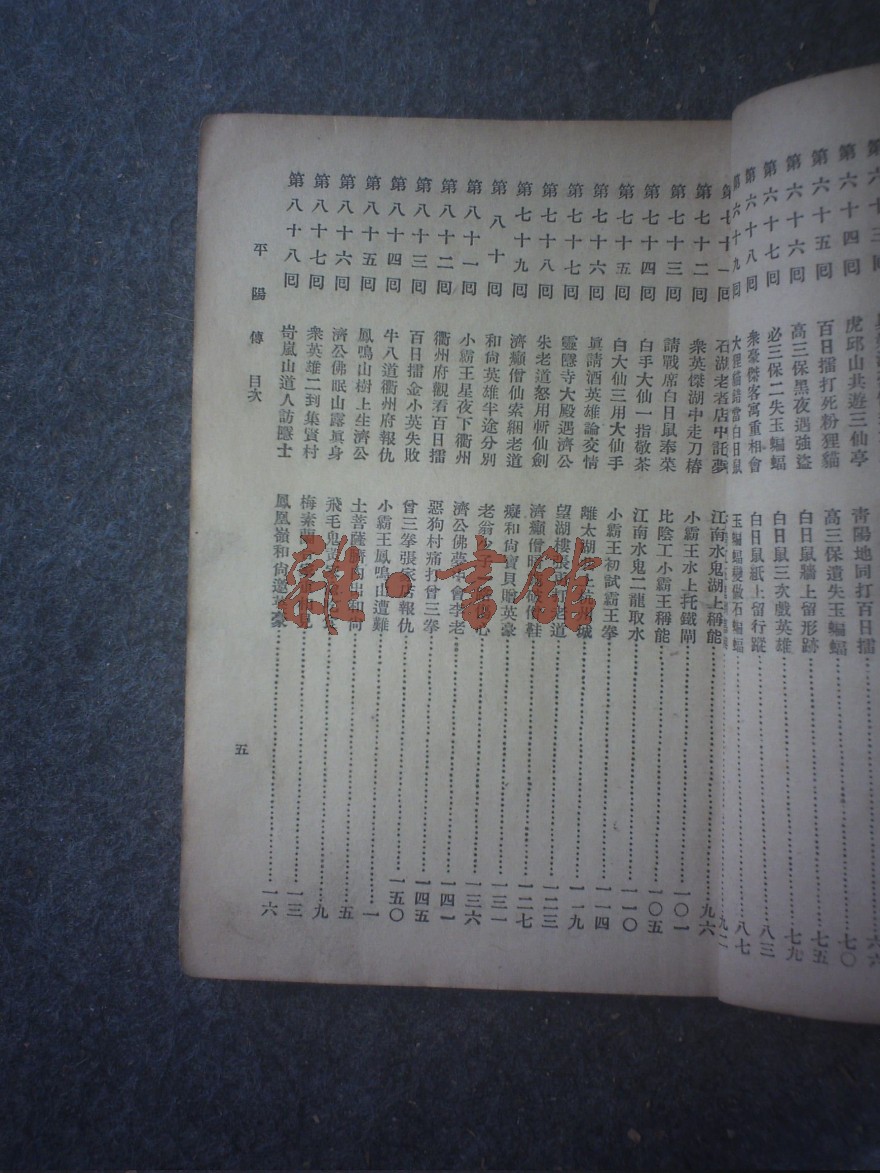 虎邱山共遊三仙亭
第六十四回
青陽地同打百日擂
第六十五回 百日擂打死粉狸貓 高三保遺失玉蝙蝠 七〇
第六十六回 高三保黑夜遇強盜 白日鼠牆上留形跡 七五
第六十七回 必三保二失玉蝙蝠 白日鼠三次戲英雄 七九
第六十八回 衆豪傑客寓重相會 白日鼠紙上留行蹤 八三
第六十九回 白日鼠 玉蝙蝠變做石蝙蝠 八七
石湖老者店中託夢 江南水鬼湖上稱能
第七十二回 衆英傑湖中走刀樁 小霸王水上托鐵閘 九六
第七十三回 請戰席白日鼠奉菜 比陰工小霸王稱能 一〇一
第七十四回 白手大仙一指敬茶 江南水鬼二龍取水 一〇五
第七十五回 白大仙三用大仙手 小霸王初試霸王拳 一一〇
第七十六回 眞請酒英雄論交情 離太湖 一一四
第七十七回 靈隱寺大殿遇濟公 望湖樓張 打老道 一一九
第七十八回 朱老道怒用斬仙劍 濟癲僧 僧鞋 一二三
第七十九回 濟癲僧仙索綑老道 癡和尙寶貝贈英豪 一二七
第八十回 和尙英雄半途分別 老翁 心 一三一
第八十一回 小霸王星夜下衢州 濟公佛夢中會李老 一三六
第八十二回 衢州府觀看百日擂 惡狗村痛打曾三拳 一四一
第八十三回 百日擂金小英失敗 曾三拳張家店報仇 一四五
第八十四回 牛八道衢州府報仇 小霸王鳳鳴山遭難 一五〇
第八十五回 鳳鳴山樹上生濟公 土菩薩臍內出和尙 一
第八十六回 濟公佛眠山露眞身 飛毛鬼 五
第八十七回 衆英雄二到集賢村 梅素 九
第八十八回 岢嵐山道人訪隱士 鳳凰嶺和尙邀英豪 一三
一六
平陽傳 目次
五
雜·書館